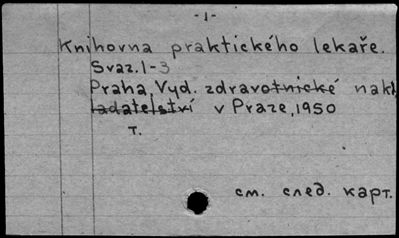 -1-
Knihovna praktického lekaře.
Svaz. 1-3
Praha, Vyd. zdravotnické nakl
ladatelství v Praze, 1950
т.
см. след. карт.